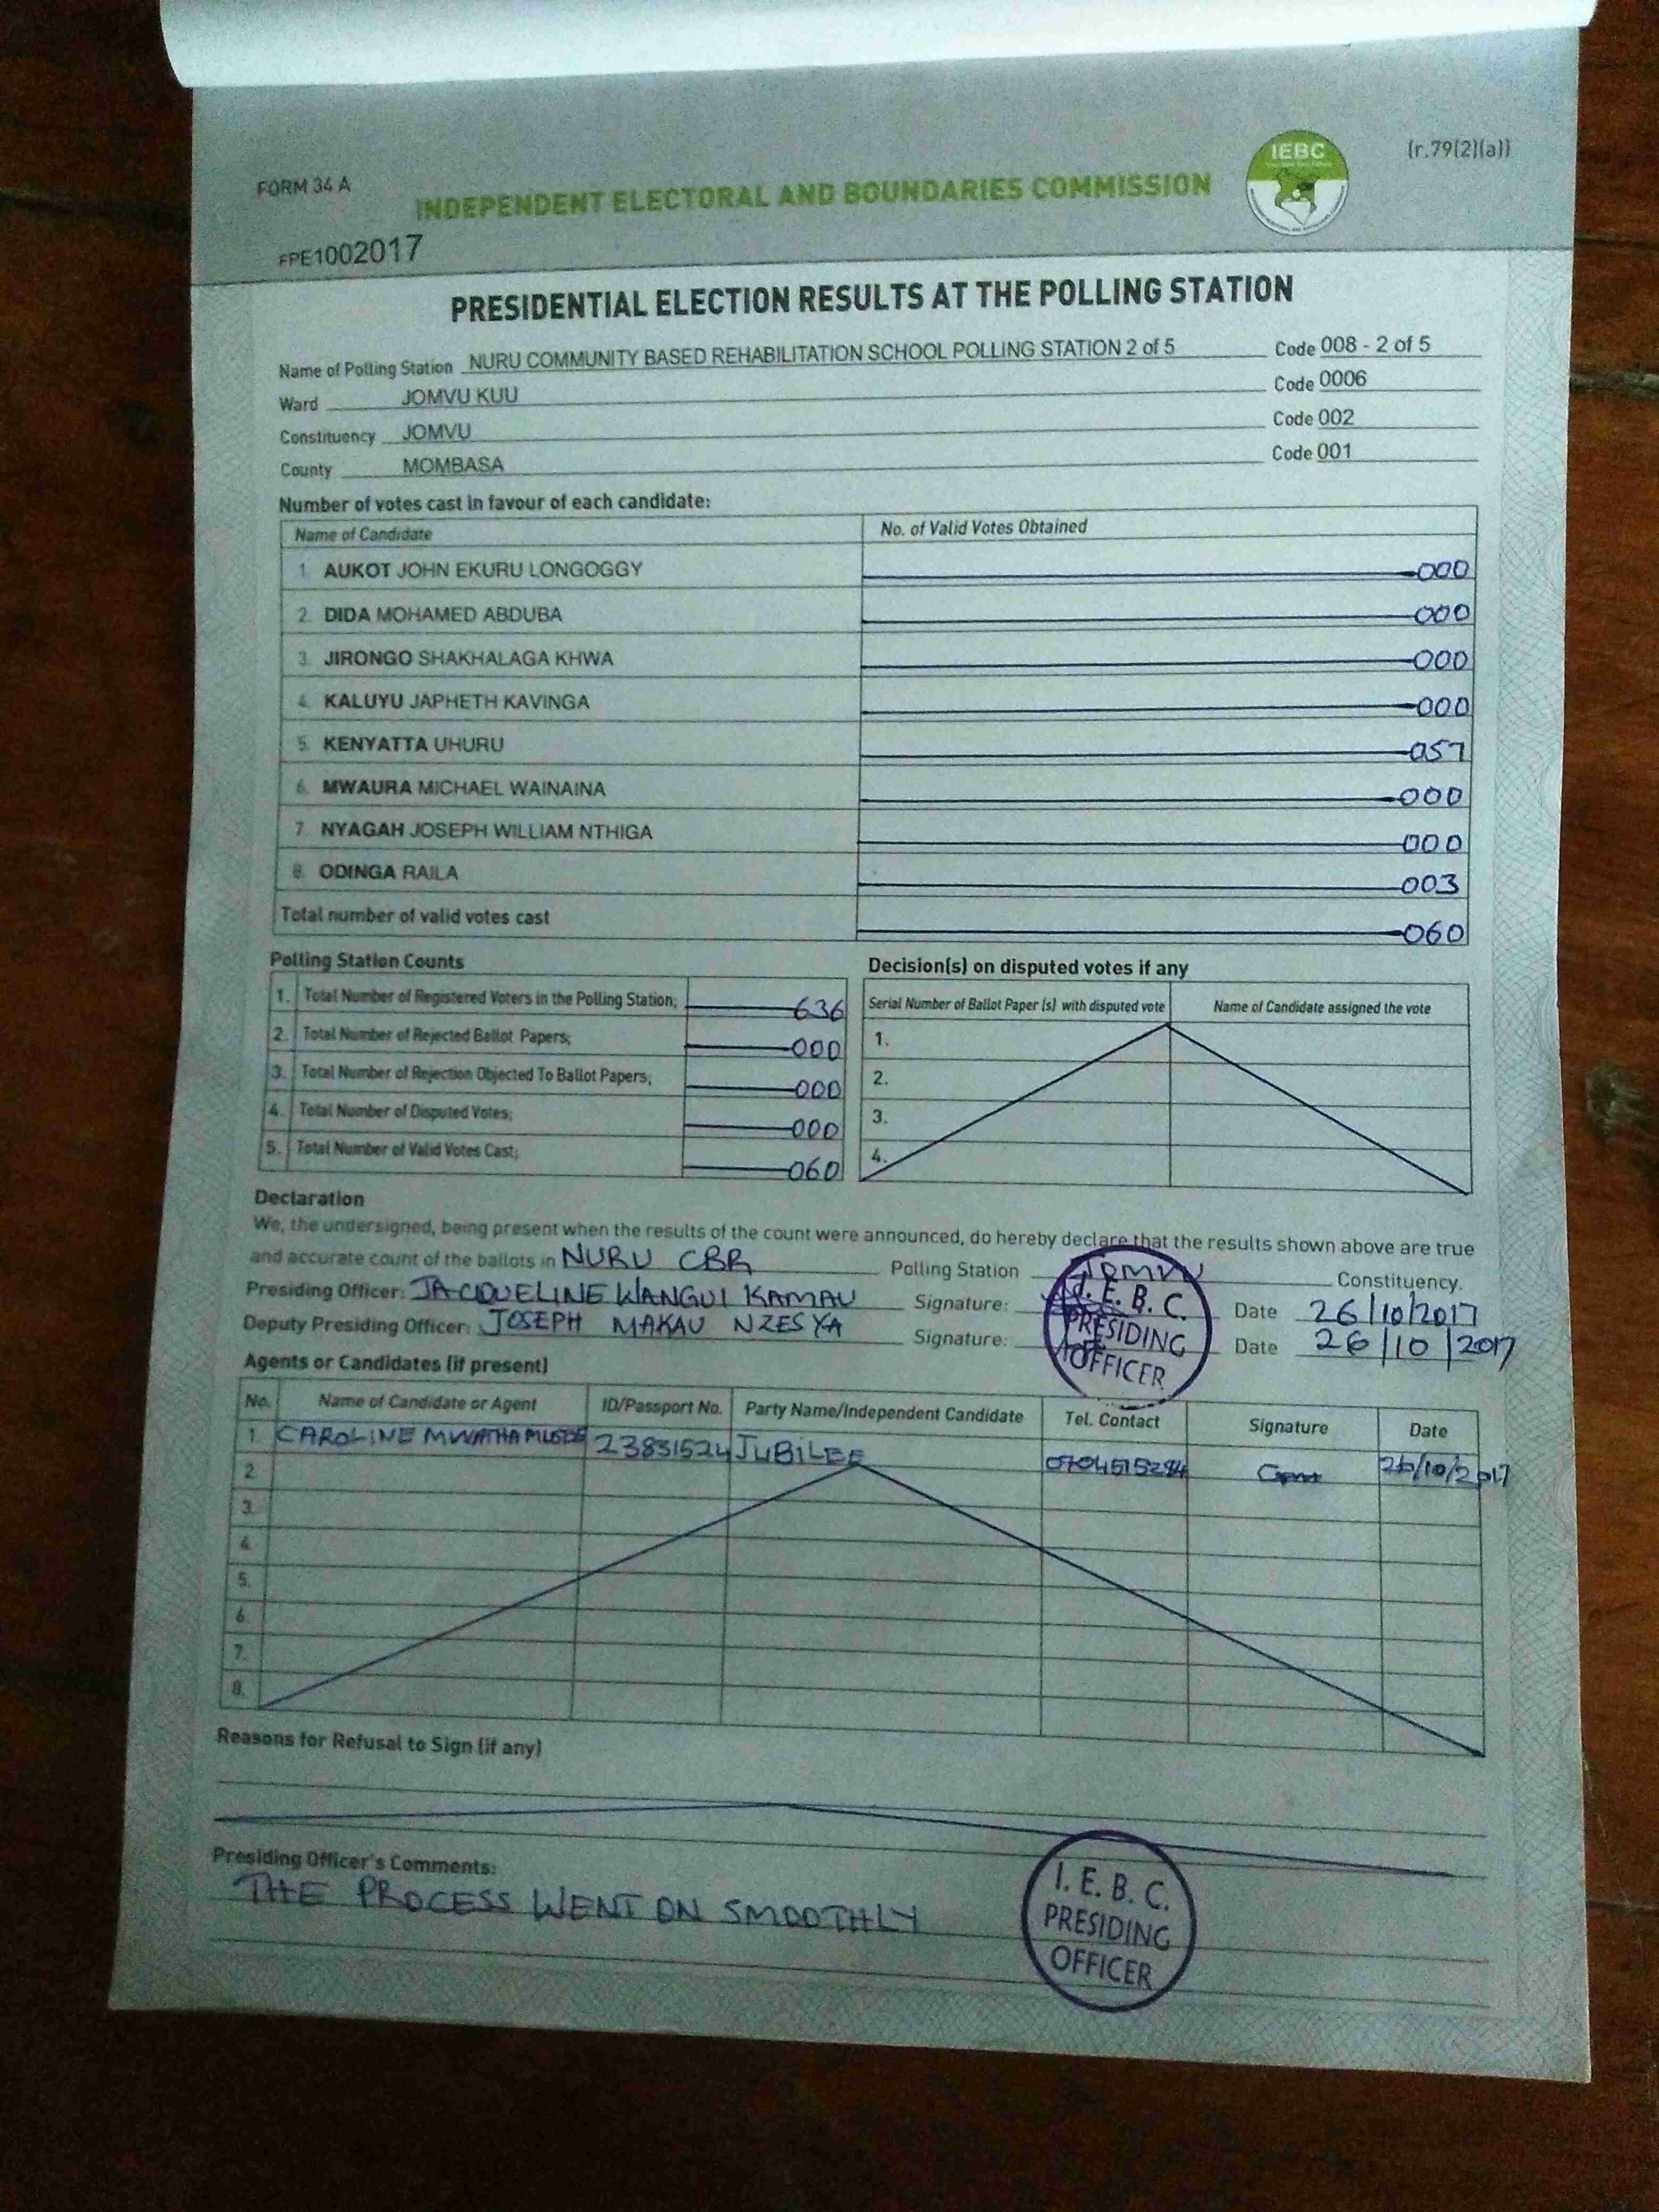 (r.79(2)(a))
IEBC
FORM 34 A
INDEPENDENT ELECTORAL AND BOUNDARIES COMMISSION
FPE1002017
PRESIDENTIAL ELECTION RESULTS AT THE POLLING STATION
Name of Polling Station NURU COMMUNITY BASED REHABILITATION SCHOOL POLLING STATION 2 of 5 Code 008 - 2 of 5
Ward JOMVU KUU Code 0006
Constituency JOMVU Code 002
County MOMBASA Code 001
Number of votes cast in favour of each candidate:
Name of Candidate No. of Valid Votes Obtained
1. AUKOT JOHN EKURU LONGOGGY 000
2. DIDA MOHAMED ABDUBA 000
3. JIRONGO SHAKHALAGA KHWA 000
4. KALUYU JAPHETH KAVINGA 000
5. KENYATTA UHURU 057
6. MWAURA MICHAEL WAINAINA 000
7. NYAGAH JOSEPH WILLIAM NTHIGA 000
8. ODINGA RAILA 003
Total number of valid votes cast 060
Polling Station Counts
1. Total Number of Registered Voters in the Polling Station; 636
2. Total Number of Rejected Ballot Papers; 000
3. Total Number of Rejection Objected To Ballot Papers; 000
4. Total Number of Disputed Votes; 000
5. Total Number of Valid Votes Cast; 060
Decision(s) on disputed votes if any
Serial Number of Ballot Paper (s) with disputed vote Name of Candidate assigned the vote
1.
2.
3.
4.
Declaration
We, the undersigned, being present when the results of the count were announced, do hereby declare that the results shown above are true
and accurate count of the ballots in NURU CBR Polling Station JOMVU Constituency.
Presiding Officer: JACQUELINE WANGUI KAMAU Signature: Date 26/10/2017
Deputy Presiding Officer: JOSEPH MAKAU NZESYA Signature: Date 26/10/2017
I. E. B. C.
PRESIDING
OFFICER
Agents or Candidates (if present)
No. Name of Candidate or Agent ID/Passport No. Party Name/Independent Candidate Tel. Contact Signature Date
1 CAROLINE MWATHA 23831524 JUBILEE 26/10/2017
2.
3.
4.
5.
6.
7.
8.
Reasons for Refusal to Sign (if any)
Presiding Officer's Comments:
THE PROCESS WENT ON SMOOTHLY
I. E. B. C.
PRESIDING
OFFICER